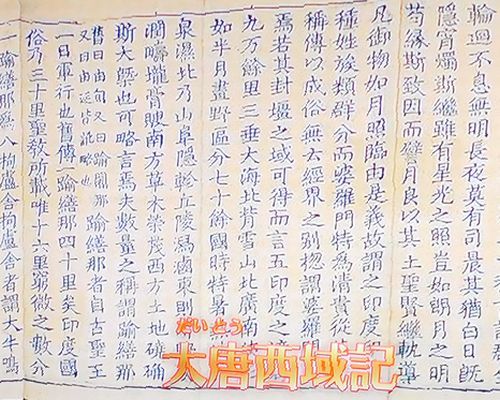 輪迴不息無明長夜莫有司晨其猶白日既
隱宵燭斯繼雖有星光之照豈如朗月之明
苟緣斯致因而譬月良以其土聖賢繼軌導
凡御物如月照臨由是義故謂之印度
種姓族類群分而婆羅門特為清貴從
稱傳以成俗無云經界之別揔謂婆羅
焉若其封壃之域可得而言五印度之
九万餘里三垂大海北背雪山北廣南
如半月畫野區分七十餘國時特暑
泉濕北乃山阜隱軫丘陵潟鹵東則
潤疇壠膏腴南方草木榮茂西方土地磽确
斯大槩也可略言焉夫數量之稱謂踰繕那
舊曰由旬又曰踰闍那
又曰由延皆訛略也
踰繕那者自古聖王
一日軍行也舊傳一踰繕那四十里矣印度國
俗乃三十里聖教所載唯十六里窮微之數分
一踰繕那為八拘盧舍拘盧舍者謂大牛鳴
だいとう
大唐西域記